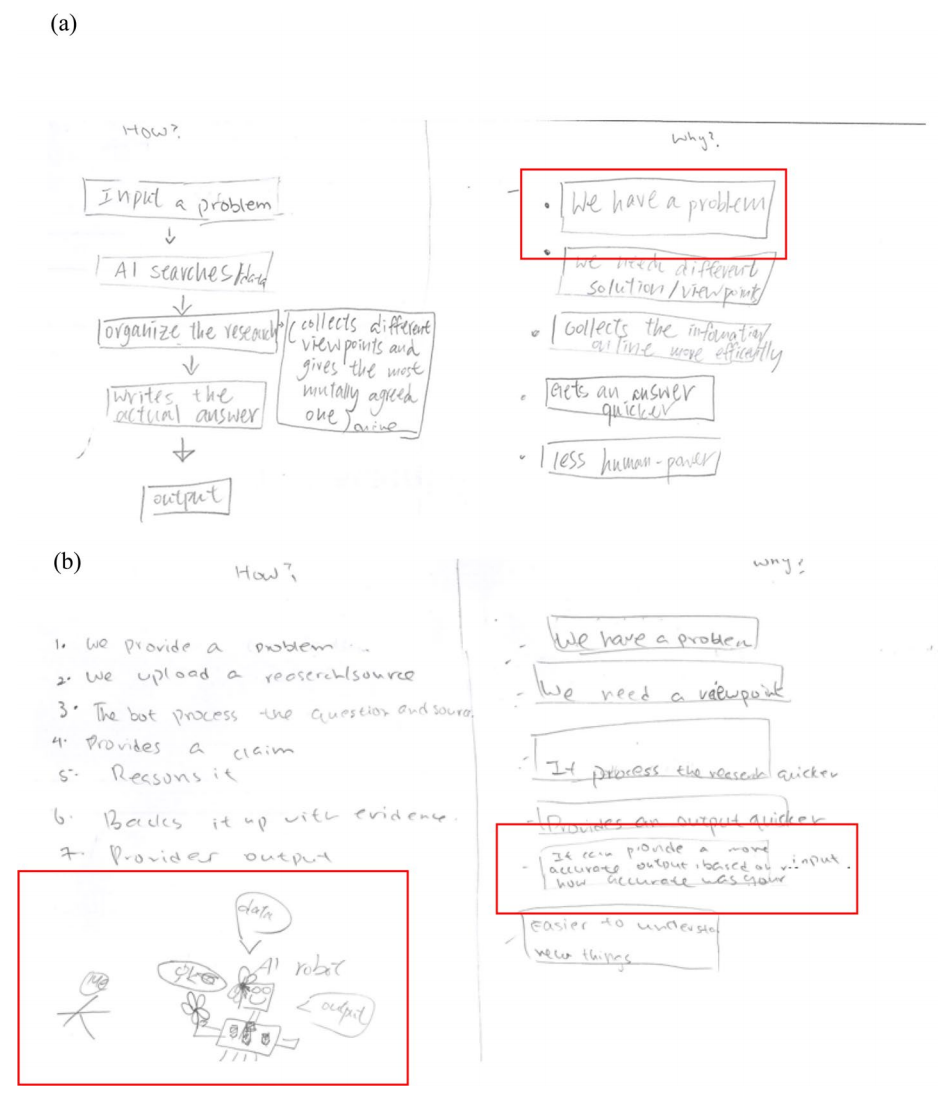 (a)
How?
Input a problem
AI searches/data
organize the research
(collects different
viewpoints and
gives the most
mutally agreed
one) online
writes the
actual answer
output
Why?
We have a problem
we need different
solution/viewpoints
collects the information
online more efficently
Gets an answer
quicker
less human-power
(b)
How?
1. we provide a problem
2. we upload a reaserch/source
3. The bot process the question and source
4. Provides a claim
5. Reasons it
6. Backs it up with evidence.
7. Provides output
me
data
AI robot
output
why?
We have a problem
We need a viewpoint
It process the reserch quicker
Provides an output quicker
It can provide a more
accurate output based on input.
how accurate was your
easier to understa
new things